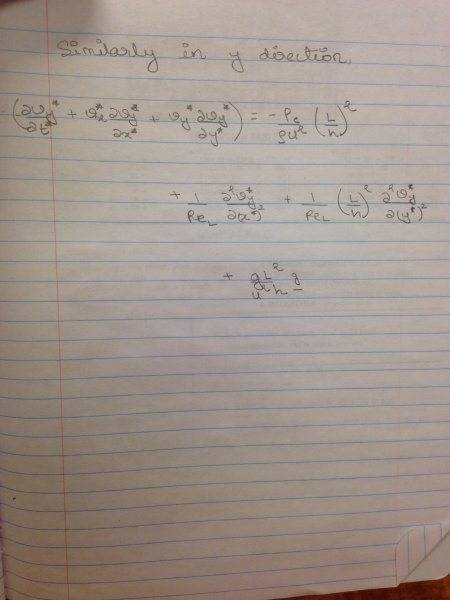 Similarly in y direction,
(∂v_y*/∂t* + v_x* ∂v_y*/∂x* + v_y* ∂v_y*/∂y*) = -P_c/ρu² (L/h)²
+ 1/Re_L ∂²v_y*/∂(x*)² + 1/Re_L (L/h)² ∂²v_y*/∂(y*)²
+ L²/h g